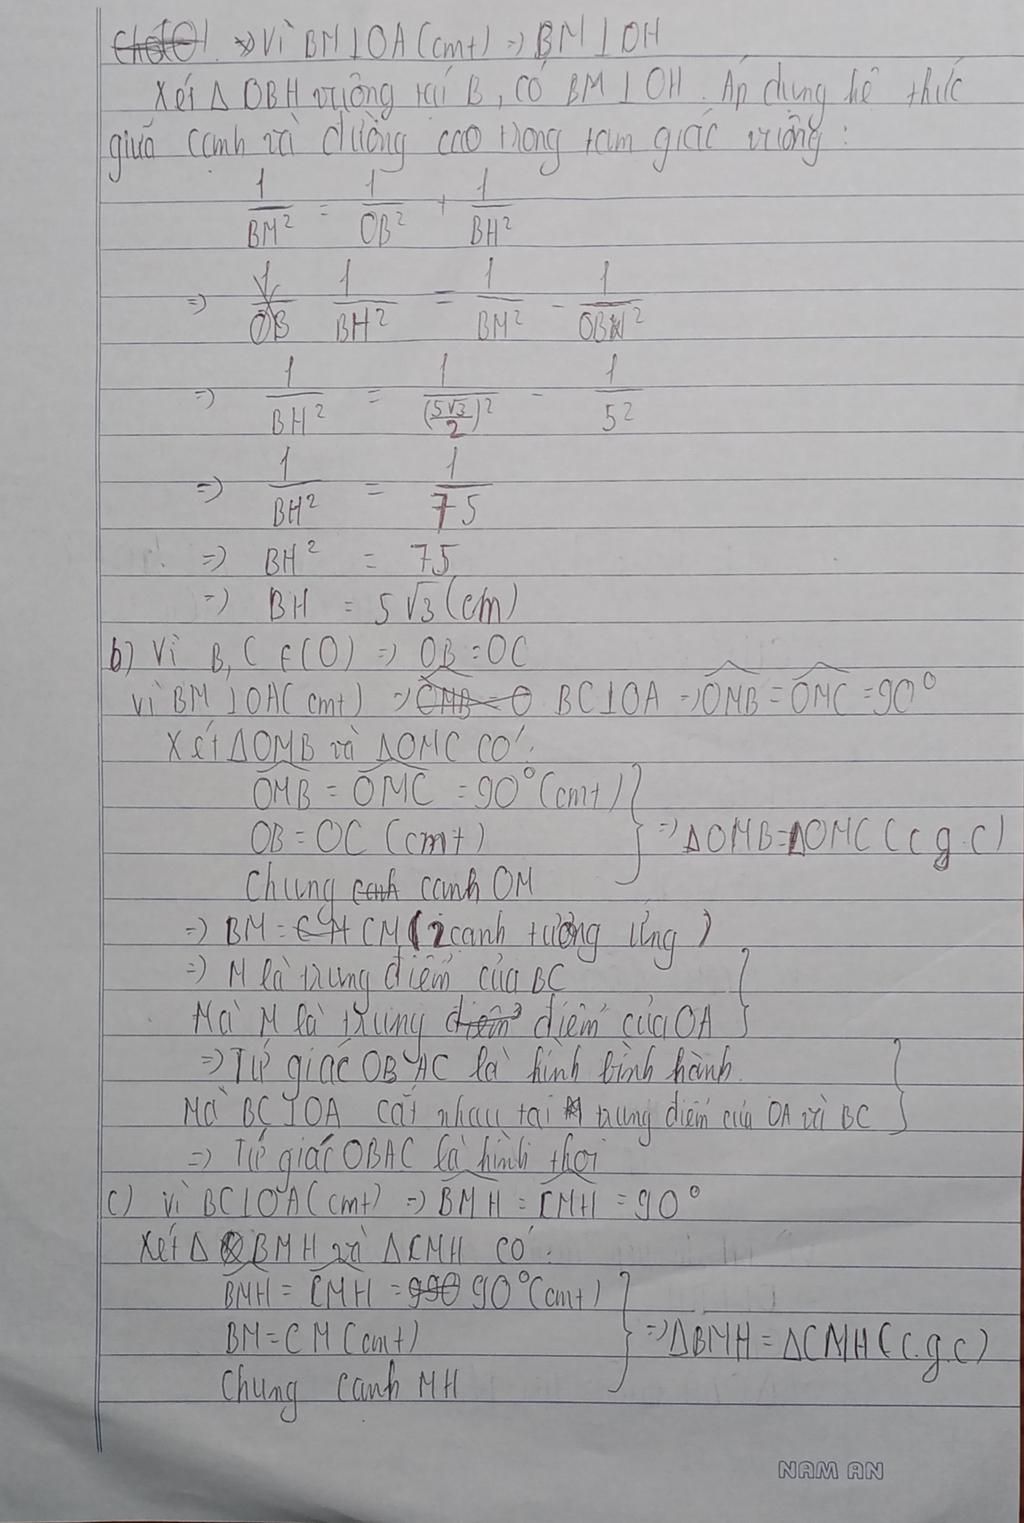 ⇒ Vì BM⊥OA (cmt) ⇒ BM⊥OH
Xét Δ OBH vuông tại B, có BM⊥OH. Áp dụng hệ thức
giữa cạnh và đường cao trong tam giác vuông:
1/BM² = 1/OB² + 1/BH²
⇒ 1/BH² = 1/BM² - 1/OB²
⇒ 1/BH² = 1/(5√3/2)² - 1/5²
⇒ 1/BH² = 1/75
⇒ BH² = 75
⇒ BH = 5√3 (cm)
b) Vì B, C ∈ (O) ⇒ OB = OC
Vì BM⊥OA (cmt) ⇒ BC⊥OA ⇒ OMB = OMC = 90°
Xét ΔOMB và ΔOMC có:
OMB = OMC = 90° (cmt)
OB = OC (cmt)
Chung cạnh OM
⇒ ΔOMB = ΔOMC (c.g.c)
⇒ BM = CM (2 cạnh tương ứng)
⇒ M là trung điểm của BC
Mà M là trung điểm của OA
⇒ Tứ giác OBAC là hình bình hành.
Mà BC⊥OA cắt nhau tại trung điểm của OA và BC
⇒ Tứ giác OBAC là hình thoi
c) Vì BC⊥OA (cmt) ⇒ BMH = CMH = 90°
Xét Δ BMH và ΔCMH có:
BMH = CMH = 90° (cmt)
BM = CM (cmt)
Chung cạnh MH
⇒ ΔBMH = ΔCMH (c.g.c)
NAM AN